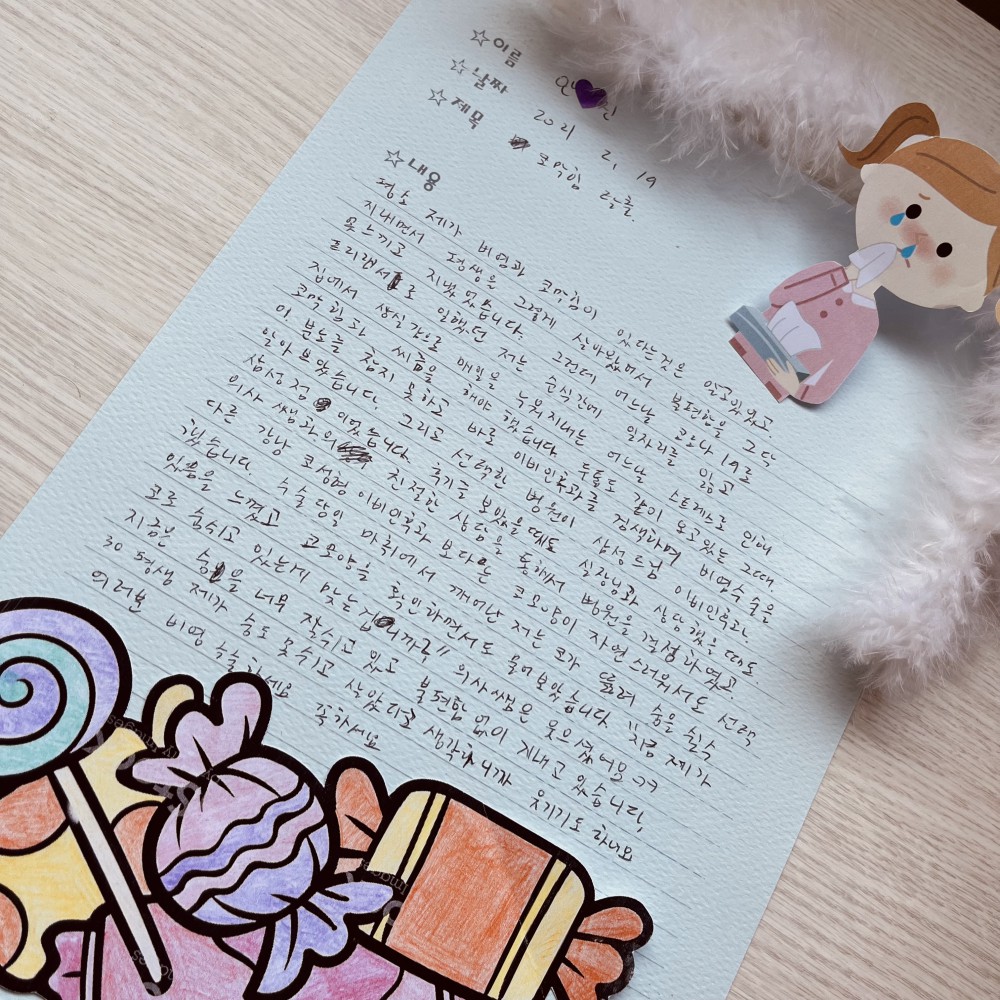 ☆이름
☆날짜 2021 2, 19
☆제목 코막힘 탈출.
☆내용
평소 제가 비염과 코막힘이 있다는것은 알고있었고.
지내면서 평생을 그렇게 살아왔어서 불편함을 그닥
못느끼고 지냈었습니다. 그런데 어느날 코로나 19로
프리랜서로 일했던 저는 순식간에 일자리를 잃고
집에서 상실감으로 매일을 누워지내는 어느날 스트레스로 인해
코막힘과 씨름을 해야했습니다 두통도 같이 오고있는 그때.
이 분노를 참지 못하고 바로 이비인후과를 검색하며 비염수술을
알아보았습니다. 그리고 선택한 병원이 삼성드림 이비인후과
삼성점 이었습니다 후기를 보았을때도 실장님과 상담했을때도
의사 쌤과의 친절한 상담을 통해서 병원을 결정하였고
다른 강남 코성형 이비인후과 보다는 코모양이 자연스러워서도 선택
했습니다. 수술당일 마취에서 깨어난 저는 코가 뚫려 숨을 쉴수
있음을 느꼈고 코모양을 확인하면서도 물어보았습니다 "지금 제가
코로 숨쉬고 있는게 맞는겁니까?" 의사쌤은 웃으셨어요 ㅋㅋ
지금은 숨을 너무 잘쉬고 있고 불편함 없이 지내고 있습니다,
30평생 제가 숨도 못쉬고 살았다고 생각하니까 웃기기도 하네요
여러분 비염 수술하세요 꼭하세요